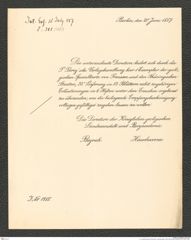 Berlin, den 20 Juni 1887
Die unterzeichnete Direction beehrt sich durch die
Verlagshandlung hier 1 Exemplar der geo-
logischen Specialkarte von Preussen und den Thüringischen
Staaten, Lieferung in Blättern nebst zugehörigen
Erläuterungen in Heften unter dem Ersuchen ergebenst
zu übersenden, uns die beiliegende Empfangsbescheinigung
vollzogen gefälligst zugehen lassen zu wollen.
Die Direction der Königlichen geologischen
Landesanstalt und Bergakademie.
Beyrich Hauchecorne